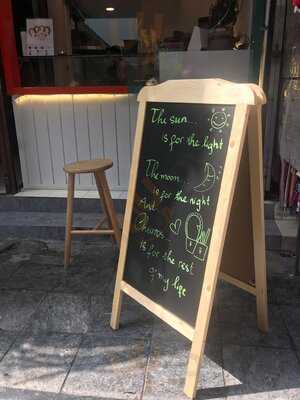 The sun...
is for the light
The moon..
is for the night
And
Churros..
is for the rest
of my life